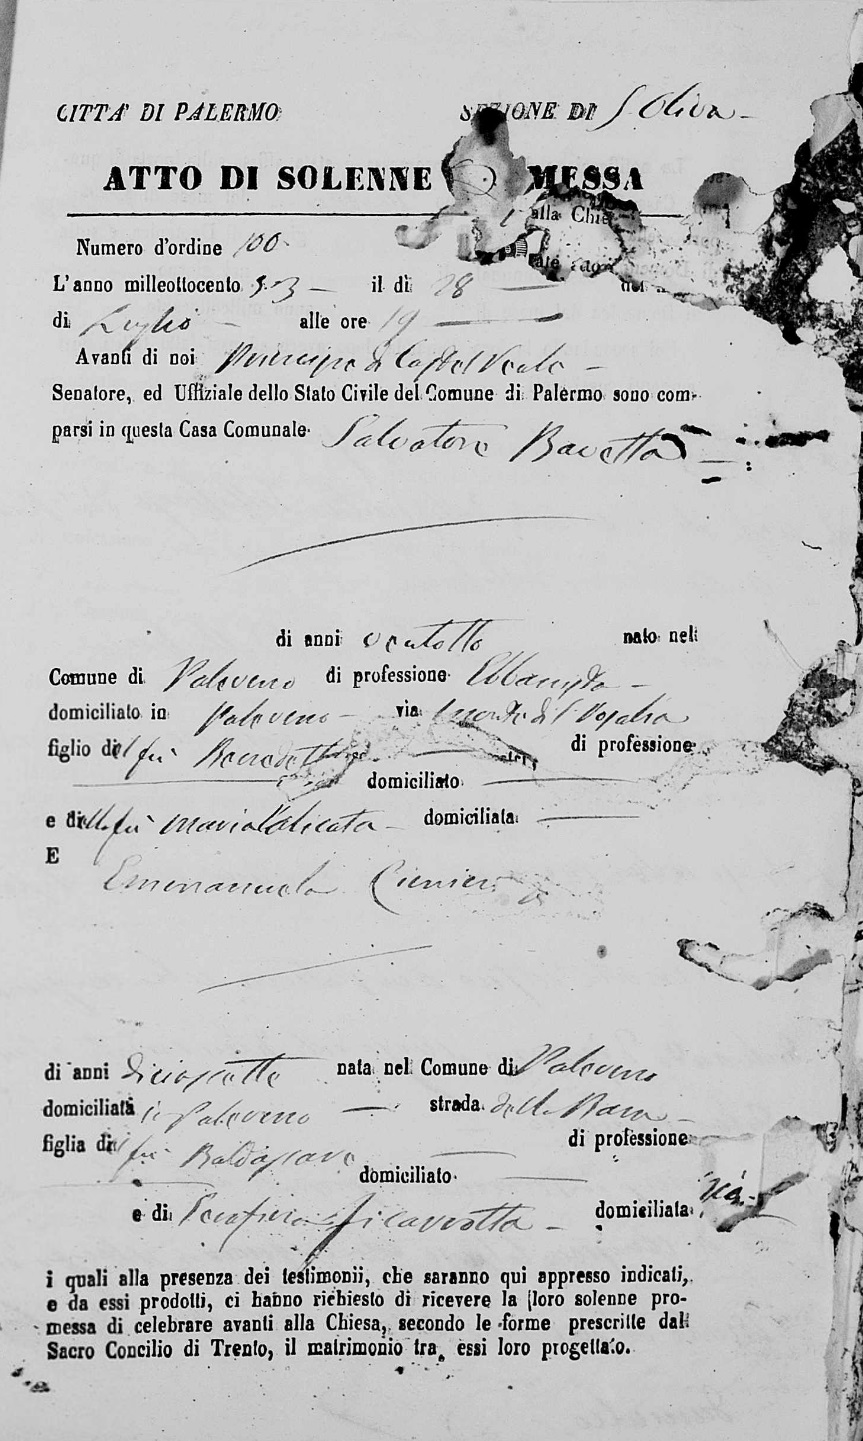 CITTA' DI PALERMO SEZIONE DI S. Oliva
ATTO DI SOLENNE MESSA
alla Chie
Numero d'ordine 100
L'anno milleottocento 53 il di 28 del
di Luglio alle ore 19
Avanti di noi Principe di
Senatore, ed Uffiziale dello Stato Civile del Comune di Palermo sono com-
parsi in questa Casa Comunale Salvatore Bavetta
di anni ventotto nato nel
Comune di Palermo di professione Ebbanista
domiciliato in Palermo via Monte di S. Rosalia
figlio del fù Benedetto di professione
domiciliato
e della fù Maria domiciliata
E
Emmanuela
di anni diciassette nata nel Comune di Palermo
domiciliata in Palermo strada della
figlia del fù Baldassare di professione
domiciliato
e di domiciliata
i quali alla presenza dei testimonii, che saranno qui appresso indicati,
e da essi prodotti, ci hanno richiesto di ricevere la loro solenne pro-
messa di celebrare avanti alla Chiesa, secondo le forme prescritte dal
Sacro Concilio di Trento, il matrimonio tra essi loro progettato.